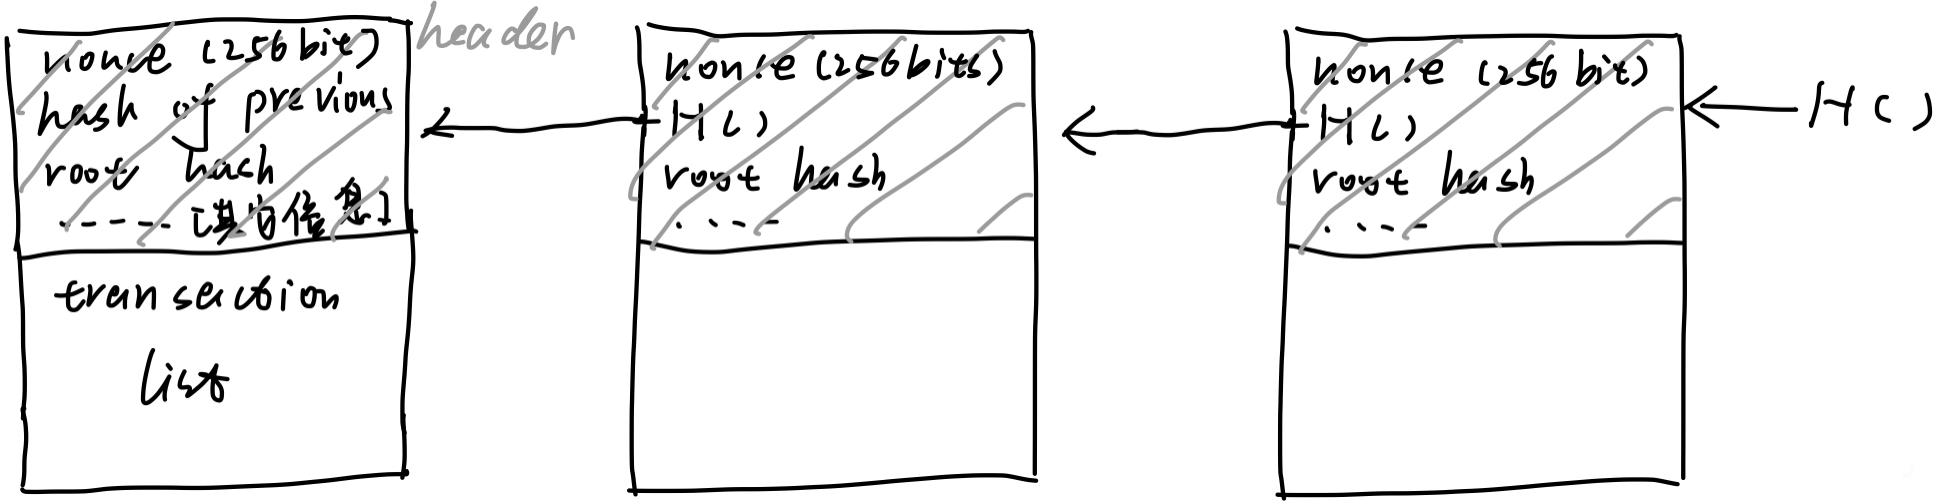 header
nonce (256 bit)
hash of previous
root hash
...... [其它信息]
transection
list
nonce (256 bits)
H()
root hash
....
nonce (256 bit)
H()
root hash
....
H()